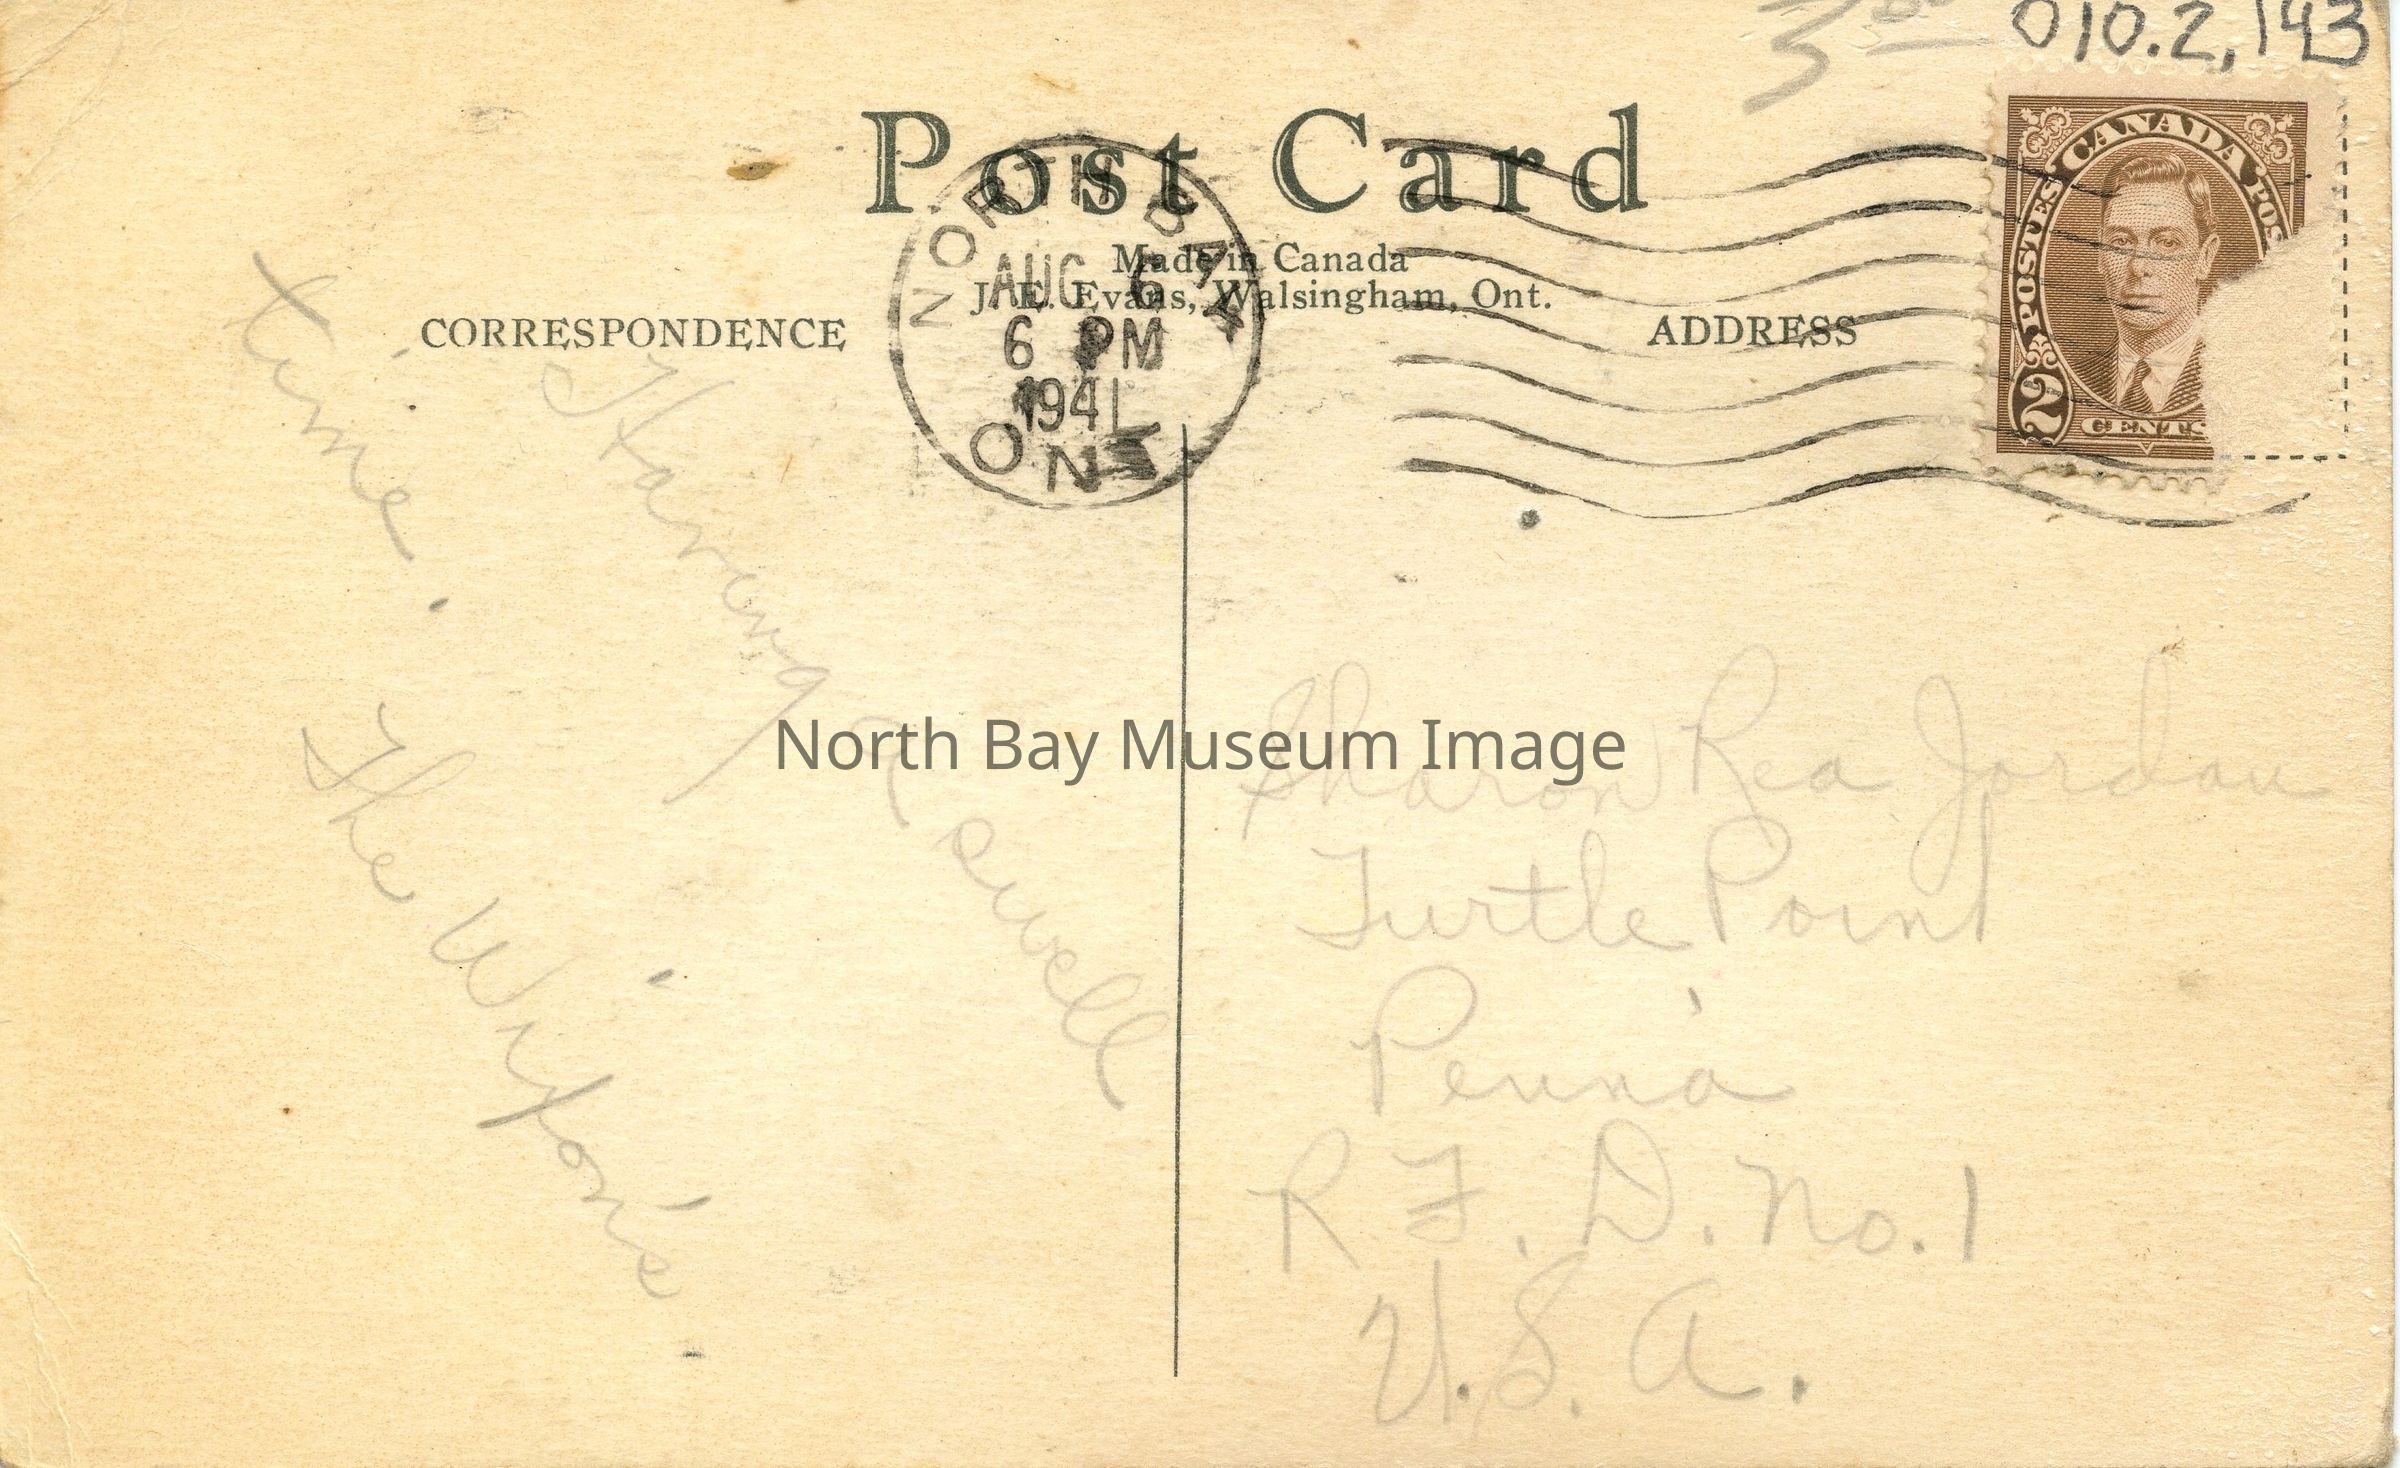 3.00
010.2,143
Post Card
Made in Canada
J. E. Evans, Walsingham, Ont.
CORRESPONDENCE
ADDRESS
NORTH BAY
AUG 6
6 PM
1941
ONT
CANADA
POSTES POS
2 CENTS
Having a swell
time.
The
North Bay Museum Image
Sharon Rea Jordan
Turtle Point
Penn'a
R.F.D. No. 1
U.S.A.